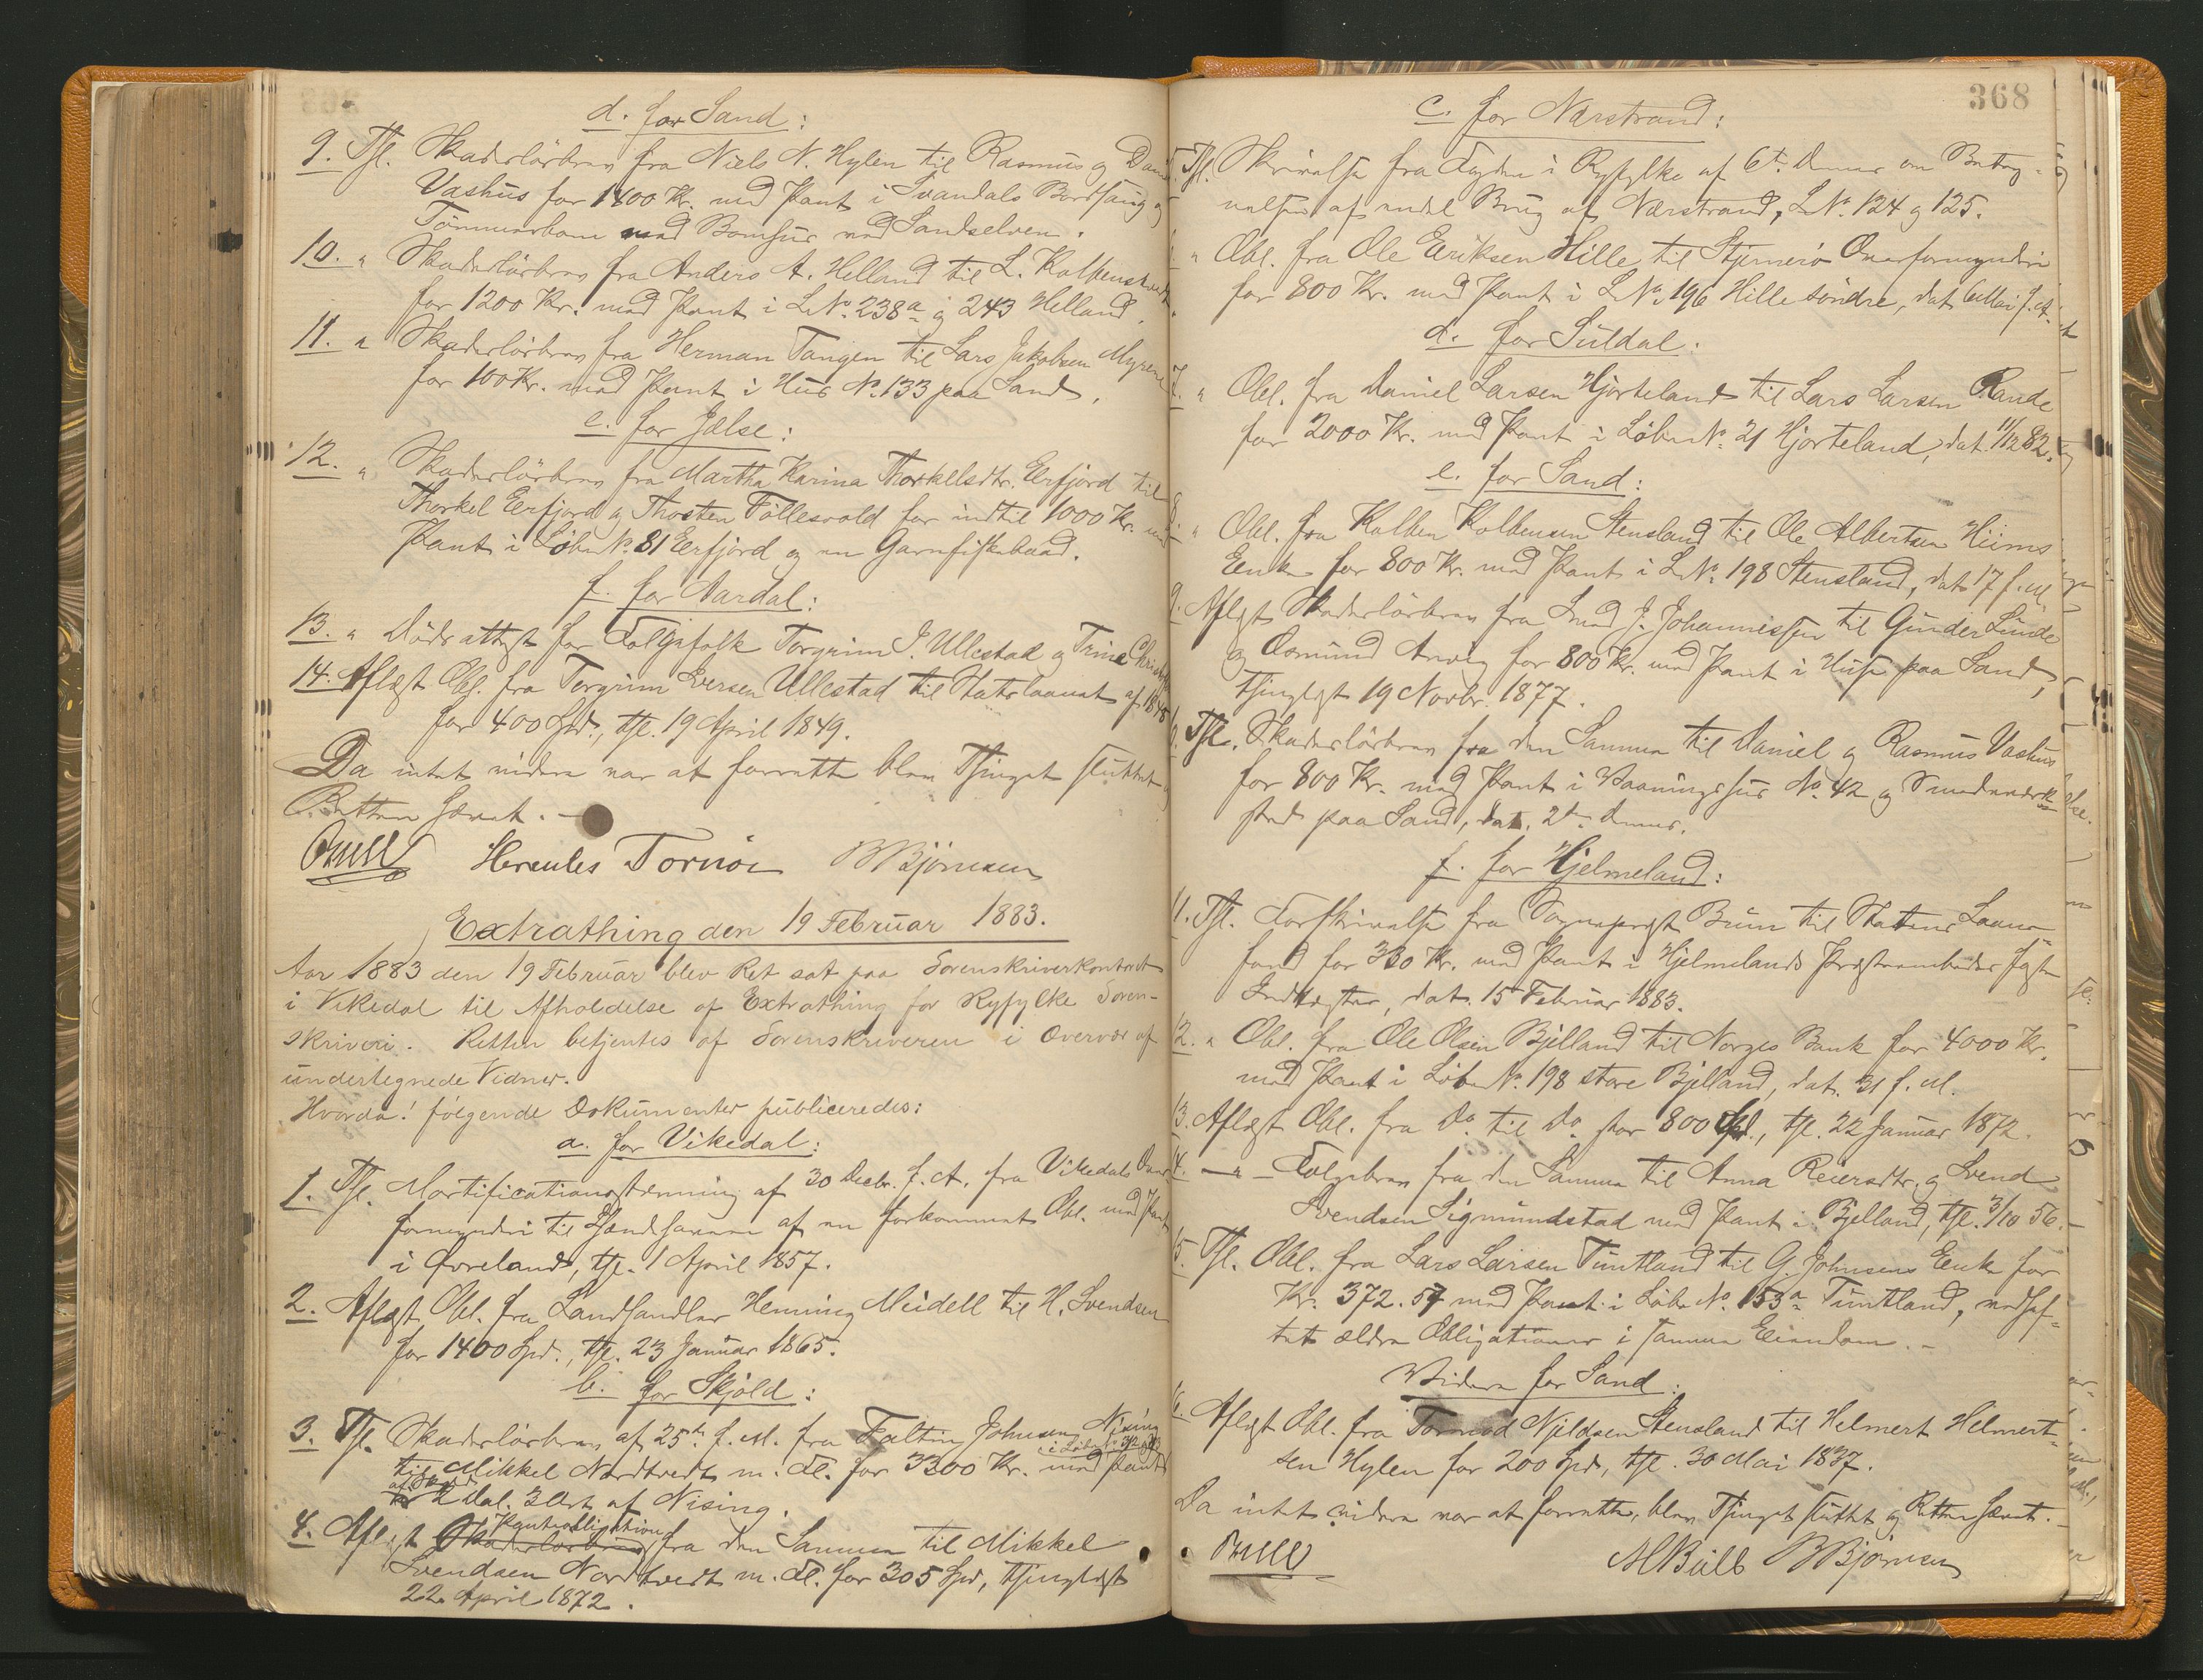 d. for Sand:
9. Tgl. Skadesløsbrev fra Niels N. Hylen til Rasmus og Daniel
Vashus for 1400 Kr. med Pant i Svandals Bordsaug og
Tømmerbom med Bomhus ved Sandselven.
10. " Skadesløsbrev fra Anders A. Helland til L. Kolbenstvedt
for 1200 Kr. med Pant i L.No. 238a og 243 Helland.
11. " Skadesløsbrev fra Herman Tangen til Lars Jakobsen Myrene
for 100 Kr. med Pant i Hus No. 133 paa Sand.
e. for Jelse:
12. " Skadesløsbrev fra Martha Karina Thorkelsdtr. Eerfjord til
Thorkel Eerfjord og Thosten Føllesvold for indtil 1000 Kr. med
Pant i Løbe No. 81 Eerfjord og en Garnfiskebaad.
f. for Aardal:
13. " Dødsattest for Folgefolk Torgrim I. Ullestad og Trine
14. Aflæst Obl. fra Torgrim Iversen Ullestad til Statslaanet af 1848
for 400 Spd., tgl. 19 April 1849.
Da intet videre var at forrette blev Thinget sluttet og
Retten hævet. -
Hercules Tornøe BBjørnsen
Extrathing den 19 Februar 1883.
Aar 1883 den 19 Februar blev Ret sat paa Sorenskriverkontoret
i Vikedal til Afholdelse af Extrathing for Ryfylke Soren-
skriveri. Retten betjentes af Sorenskriveren i Overvær af
undertegnede Vidner.
Hvorda! følgende Dokumenter publiceredes:
a. for Vikedal:
1. Tgl. Mortificationsstevning af 30 Decbr. f. A. fra Vikedals Over
formynderi til Ihændehaveren af en forkommet Obl. med Pant
i Øvreland, tgl. 1 April 1857.
2. Aflæst Obl. fra Landhandler Henning Meidell til H. Svendsen
for 1400 Spd., tgl. 23 Januar 1865.
b. for Skjold:
3. Tgl. Skadesløsbrev af 25de f. M. fra Faltin Johnsen Nising
til Mikkel Nordtvedt m. Fl. for 3300 Kr. med Pant
2 Dal. 3 Ort af Nising.
4. Aflæst Skadesløsbrev Pantobligation fra den Samme til Mikkel
Svendsen Nordtvedt m. Fl. for 305 Spd, thinglæst
22 April 1872.
368
c. for Nærstrand:
5. Tgl. Skrivelse fra Fogden i Ryfylke af 6te Dennes om Beteg-
nelsen af endel Brug af Nærstrand, L.No. 124 og 125.
6. " Obl. fra Ole Eriksen Hille til Stjernerø Overformynderi
for 800 Kr. med Pant i L.No. 196 Hille søndre, dat. 6 Mai f. A.
d. for Suldal.
7. " Obl. fra Daniel Larsen Hjorteland til Lars Larsen Rande
for 2000 Kr. med Pant i Løbe No. 21 Hjorteland, dat. 11/12 82.
e. for Sand:
8. " Obl. fra Kolben Kolbensen Stensland til Ole Albertsen Hiims
Enke for 800 Kr. med Pant i L.No. 198 Stensland, dat. 17 f. M.
9. Aflæst Skadesløsbrev fra Knud J. Johannessen til Gunder Lunde
og Osmund Arveg for 800 Kr. med Pant i Huse paa Sand,
thinglæst 19 Novbr. 1877.
10. Tgl. Skadesløsbrev fra den Samme til Daniel og Rasmus Vashus
for 800 Kr. med Pant i Vaaningshus No. 42 og Smedeværk
sted paa Sand, dat. 2den Dennes.
f. for Hjelmeland:
11. Tgl. Forskrivelse fra Sogneprest Bruun til Statens Laane-
fond for 330 Kr. med Pant i Hjelmelands Præsteembedes faste
Indtægter, dat. 15 Februar 1883.
12. " Obl. fra Ole Olsen Bjelland til Norges Bank for 4000 Kr.
med Pant i Løbe No. 198 store Bjelland, dat. 31 f. M.
13. Aflæst Obl. fra Do. til Do. stor 800 Spd., tgl. 22 Januar 1872.
14. — " — Folgebrev fra den Samme til Anna Reiersdtr. og Svend
Svendsen Sigmundstad med Pant i Bjelland, tgl. 3/10 56.
15. Tgl. Obl. fra Lars Larsen Tuntland til G. Johnsens Enke for
Kr. 372.57 med Pant i Løbe No. 153a Tuntland, vedhef-
tet ældre Obligationer i samme Eiendom. -
Videre for Sand:
16. Aflæst Obl. fra Tormod Njeldsen Stensland til Helmert Helmert-
sen Hylen for 200 Spd, tgl. 30 Mai 1837.
Da intet videre var at forrette, blev Thinget sluttet og Retten hævet. -
MBull BBjørnsen